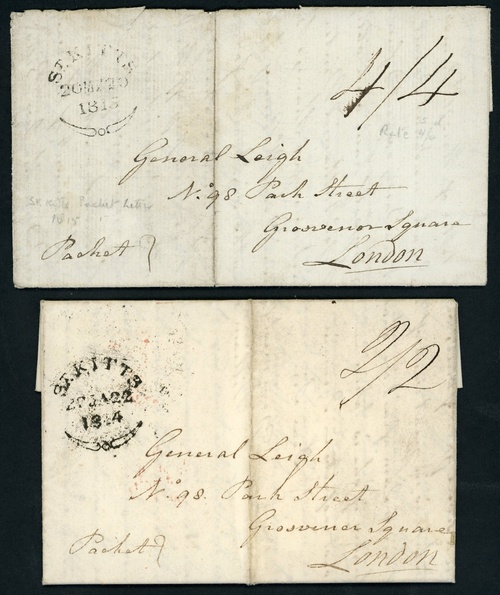 ST. KITTS
1815
4/4
Rate
General Leigh
No. 98 Park Street
Grosvenor Square
London
St Kitts Packet Letter
1815
Packet
ST. KITTS
JA22
1814
2/2
General Leigh
No. 98 Park Street
Grosvenor Square
London
Packet